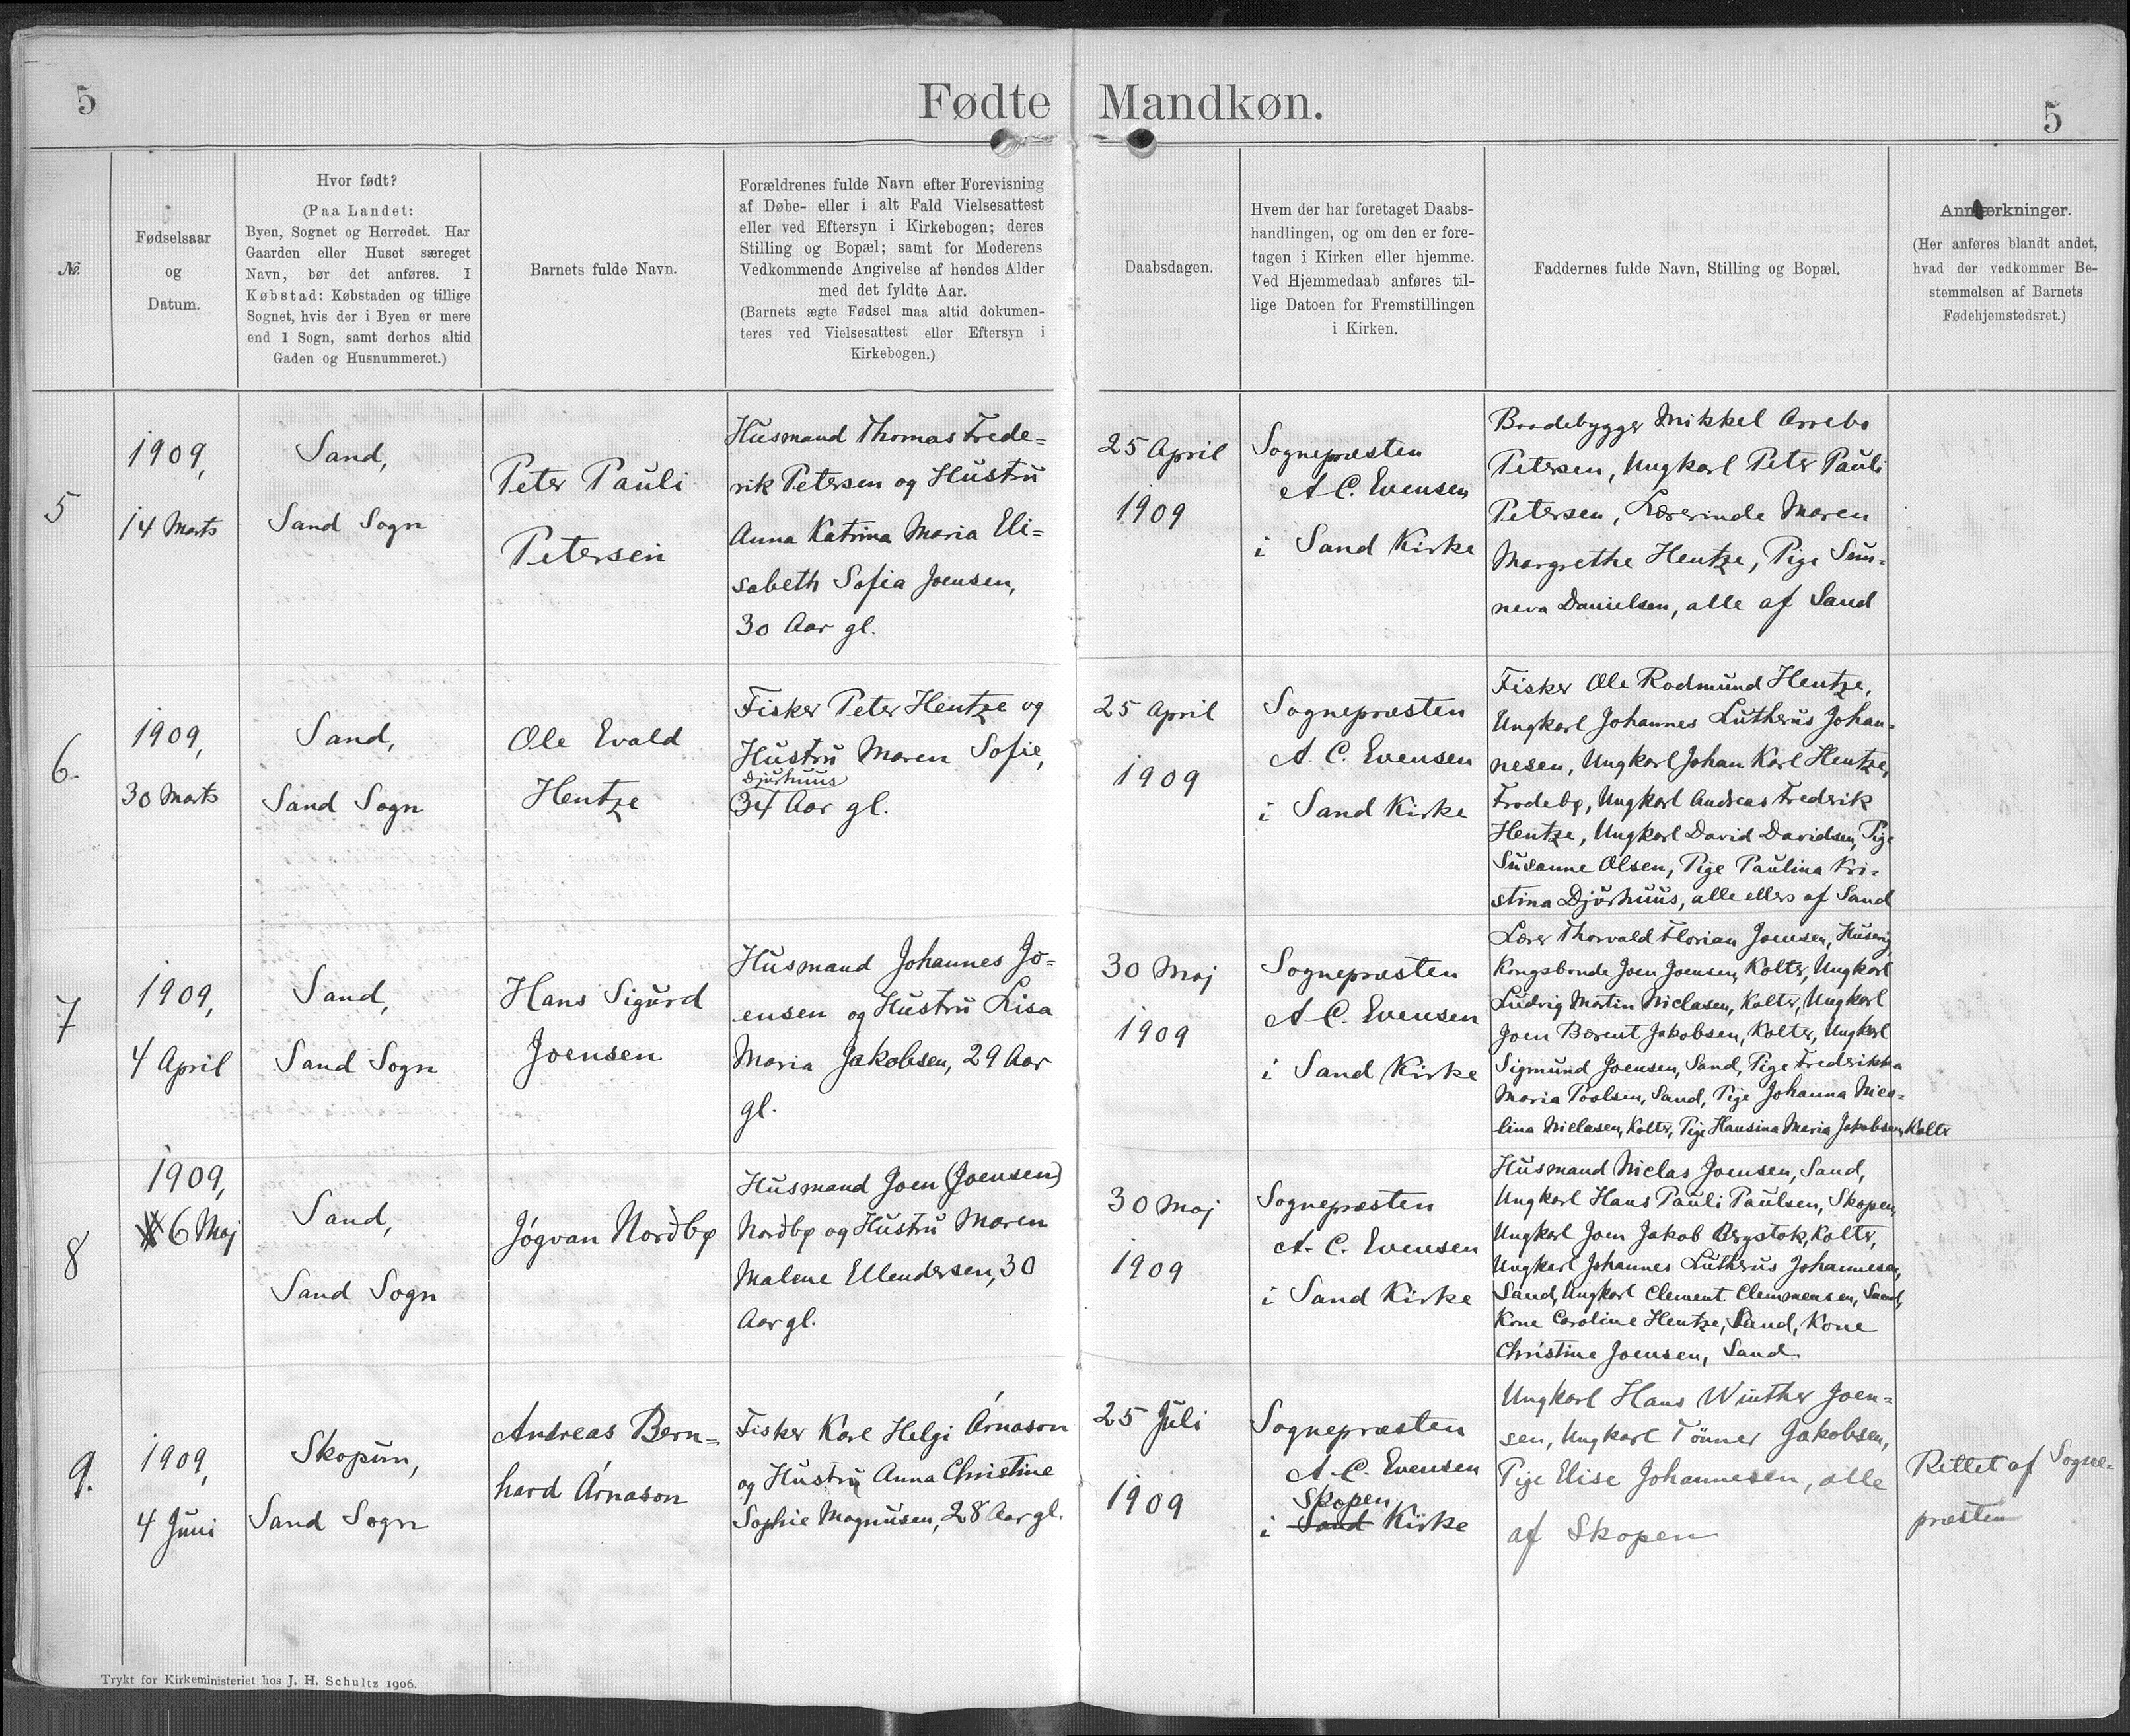 5
Fødte Mandkøn.
5
№.
Fødselsaar
og
Datum.
Hvor født?
(Paa Landet:
Byen, Sognet og Herredet. Har
Gaarden eller Huset særeget
Navn, bør det anføres. I
Købstad: Købstaden og tillige
Sognet, hvis der i Byen er mere
end 1 Sogn, samt derhos altid
Gaden og Husnummeret.)
Barnets fulde Navn.
Forældrenes fulde Navn efter Forevisning
af Døbe- eller i alt Fald Vielsesattest
eller ved Eftersyn i Kirkebogen; deres
Stilling og Bopæl; samt for Moderens
Vedkommende Angivelse af hendes Alder
med det fyldte Aar.
(Barnets ægte Fødsel maa altid dokumen-
teres ved Vielsesattest eller Eftersyn i
Kirkebogen.)
Daabsdagen.
Hvem der har foretaget Daabs-
handlingen, og om den er fore-
tagen i Kirken eller hjemme.
Ved Hjemmedaab anføres til-
lige Datoen for Fremstillingen
i Kirken.
Faddernes fulde Navn, Stilling og Bopæl.
Anmærkninger.
(Her anføres blandt andet,
hvad der vedkommer Be-
stemmelsen af Barnets
Fødehjemstedsret.)
5
1909,
14 Marts
Sand,
Sand Sogn
Peter Pauli
Petersen
Husmand Thomas Frede=
rik Petersen og Hustru
Anna Katrina Maria Eli=
sabeth Sofia Joensen,
30 Aar gl.
25 April
1909
Sognepræsten
A C. Evensen
i Sand Kirke
Baadebygger Mikkel Arrebo
Petersen, Ungkarl Peter Pauli
Petersen, Lærerinde Maren
Margrethe Hentze, Pige Sun=
neva Danielsen, alle af Sand
6.
1909,
30 Marts
Sand,
Sand Sogn
Ole Evald
Hentze
Fisker Peter Hentze og
Hustru Maren Sofie,
Djurhuus
34 Aar gl.
25 April
1909
Sognepræsten
A. C. Evensen
i Sand Kirke
Fisker Ole Rodmund Hentze,
Ungkarl Johannes Lutherus Johan=
nesen, Ungkarl Johan Karl Hentze,
Frodebø, Ungkarl Andreas Frederik
Hentze, Ungkarl David Davidsen, Pige
Susanne Olsen, Pige Paulina Kri=
stina Djurhuus, alle ellers af Sand
7
1909,
4 April
Sand,
Sand Sogn
Hans Sigurd
Joensen
Husmand Johannes Jo=
ensen og Hustru Lisa
Maria Jakobsen, 29 Aar
gl.
30 Maj
1909
Sognepræsten
A C. Evensen
i Sand Kirke
Lærer Thorvald Florian Joensen, Husevig
Kongsbonde Joen Joensen, Kolter, Ungkarl
Ludvig Martin Niclasen, Kolter, Ungkarl
Joen Bærent Jakobsen, Kolter, Ungkarl
Sigmund Joensen, Sand, Pige Frederikka
Maria Poulsen, Sand, Pige Johanna Nico=
lina Niclasen, Kolter, Pige Hansina Maria Jakobsen, Kolter
8
1909,
6 Maj
Sand,
Sand Sogn
Jógvan Norðbø
Husmand Joen (Joensen)
Norðbø og Hustru Maren
Malene Ellendersen, 30
Aar gl.
30 Maj
1909
Sognepræsten
A. C. Evensen
i Sand Kirke
Husmand Niclas Joensen, Sand,
Ungkarl Hans Pauli Paulsen, Skopen,
Ungkarl Joen Jakob Brystok, Kolter,
Ungkarl Johannes Lutherus Johannesen,
Sand, Ungkarl Clement Clemmensen, Sand,
Kone Caroline Hentze, Sand, Kone
Christine Joensen, Sand.
9.
1909,
4 Juni
Skopun,
Sand Sogn
Andreas Bern=
hard Árnason
Fisker Karl Helgi Árnason
og Hustru Anna Christine
Sophie Magnusen, 28 Aar gl.
25 Juli
1909
Sognepræsten
A. C. Evensen
Skopen
i Sand Kirke
Ungkarl Hans Winther Joen=
sen, Ungkarl Tønner Jakobsen,
Pige Elise Johannesen, alle
af Skopen
Rettet af Sogne=
præsten
Trykt for Kirkeministeriet hos J. H. Schultz 1906.